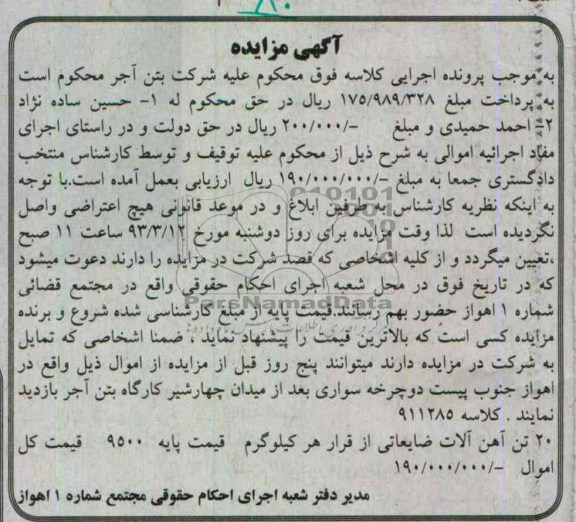 ۸۰
آگهی مزایده
به موجب پرونده اجرایی کلاسه فوق محکوم علیه شرکت بتن آجر محکوم است
به پرداخت مبلغ ۱۷۵/۹۸۹/۳۲۸ ریال در حق محکوم له ۱- حسین ساده نژاد
۲- احمد حمیدی و مبلغ -/۲۰۰/۰۰۰ ریال در حق دولت و در راستای اجرای
مفاد اجرائیه اموالی به شرح ذیل از محکوم علیه توقیف و توسط کارشناس منتخب
دادگستری جمعا به مبلغ -/۱۹۰/۰۰۰/۰۰۰ ریال ارزیابی بعمل آمده است.با توجه
به اینکه نظریه کارشناس به طرفین ابلاغ و در موعد قانونی هیچ اعتراضی واصل
نگردیده است لذا وقت مزایده برای روز دوشنبه مورخ ۹۳/۳/۱۲ ساعت ۱۱ صبح
،تعیین میگردد و از کلیه اشخاصی که قصد شرکت در مزایده را دارند دعوت میشود
که در تاریخ فوق در محل شعبه اجرای احکام حقوقی واقع در مجتمع قضائی
شماره ۱ اهواز حضور بهم رسانند.قیمت پایه از مبلغ کارشناسی شده شروع و برنده
ParsNamadData
مزایده کسی است که بالاترین قیمت را پیشنهاد نماید ، ضمنا اشخاصی که تمایل
به شرکت در مزایده دارند میتوانند پنج روز قبل از مزایده از اموال ذیل واقع در
اهواز جنوب پیست دوچرخه سواری بعد از میدان چهارشیر کارگاه بتن آجر بازدید
نمایند . کلاسه ۹۱۱۲۸۵
۲۰ تن آهن آلات ضایعاتی از قرار هر کیلوگرم قیمت پایه ۹۵۰۰ قیمت کل
اموال -/۱۹۰/۰۰۰/۰۰۰
مدیر دفتر شعبه اجرای احکام حقوقی مجتمع شماره ۱ اهواز